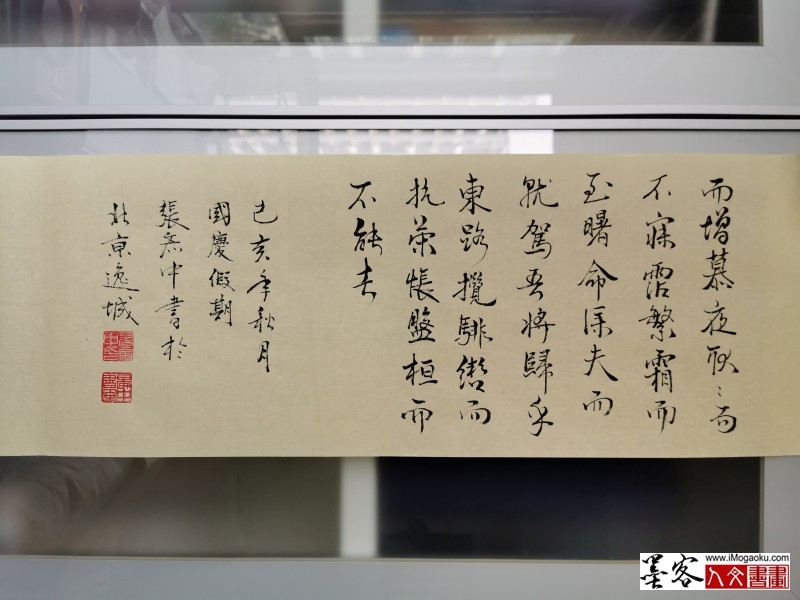 而增慕夜耿〻而
不寐霑繁霜而
至曙命僕夫而
就駕吾將歸乎
東路攬騑轡而
抗策悵盤桓而
不能去
己亥年秋月
國慶假期
張志中書於
北京逸城
墨客
www.iMogaoku.com
人文書畫